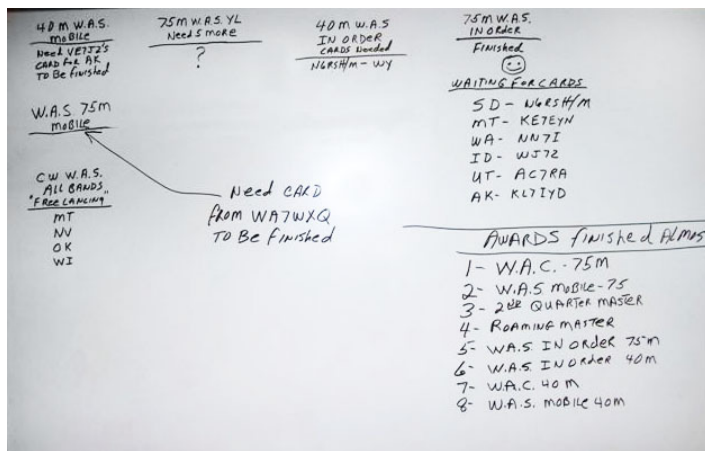 40 m W.A.S.
mobile
Need VE7JZ's
CARD for AK
TO Be finished
75m W.A.S. YL
Need 5 more
?
40 m W.A.S
IN ORDER
CARDS Needed
N6RSH/m - WY
75m W.A.S.
IN ORDER
FINISHED
WAITING FOR CARDS
SD - N6RSH/m
MT- KE7EYN
WA- NN7I
ID - WJ7Z
UT- AC7RA
AK- KL7IYD
W.A.S. 75m
mobile
Need CARD
from WA7WXQ
TO Be Finished
CW W.A.S.
ALL BANDS
"FREELANCING"
MT
NV
OK
WI
AWARDS finished Almos
1- W.A.C. - 75m
2- W.A.S. mobile - 75
3- 2nd QUARTER MASTER
4- ROAMING MASTER
5- W.A.S. IN ORDER 75m
6- W.A.S. IN ORDER 40m
7- W.A.C. 40 m
8- W.A.S. mobile 40m